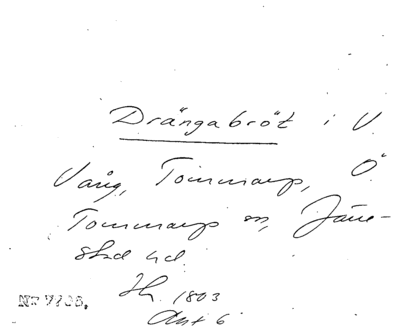 Drängabröt i V.
Vång, Tommarp, Ö
Tommarp sn, Järre-
stad hd.
Jh. 1803
Akt 6